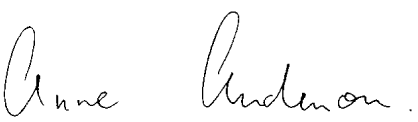 Anne Anderson.